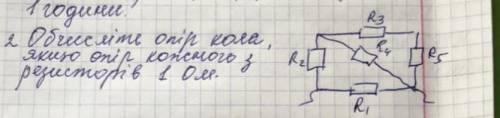 1 години.
2. Обчисліть опір кола,
якщо опір кожного з
резисторів 1 Ом.
R3
R2
R4
R5
R1